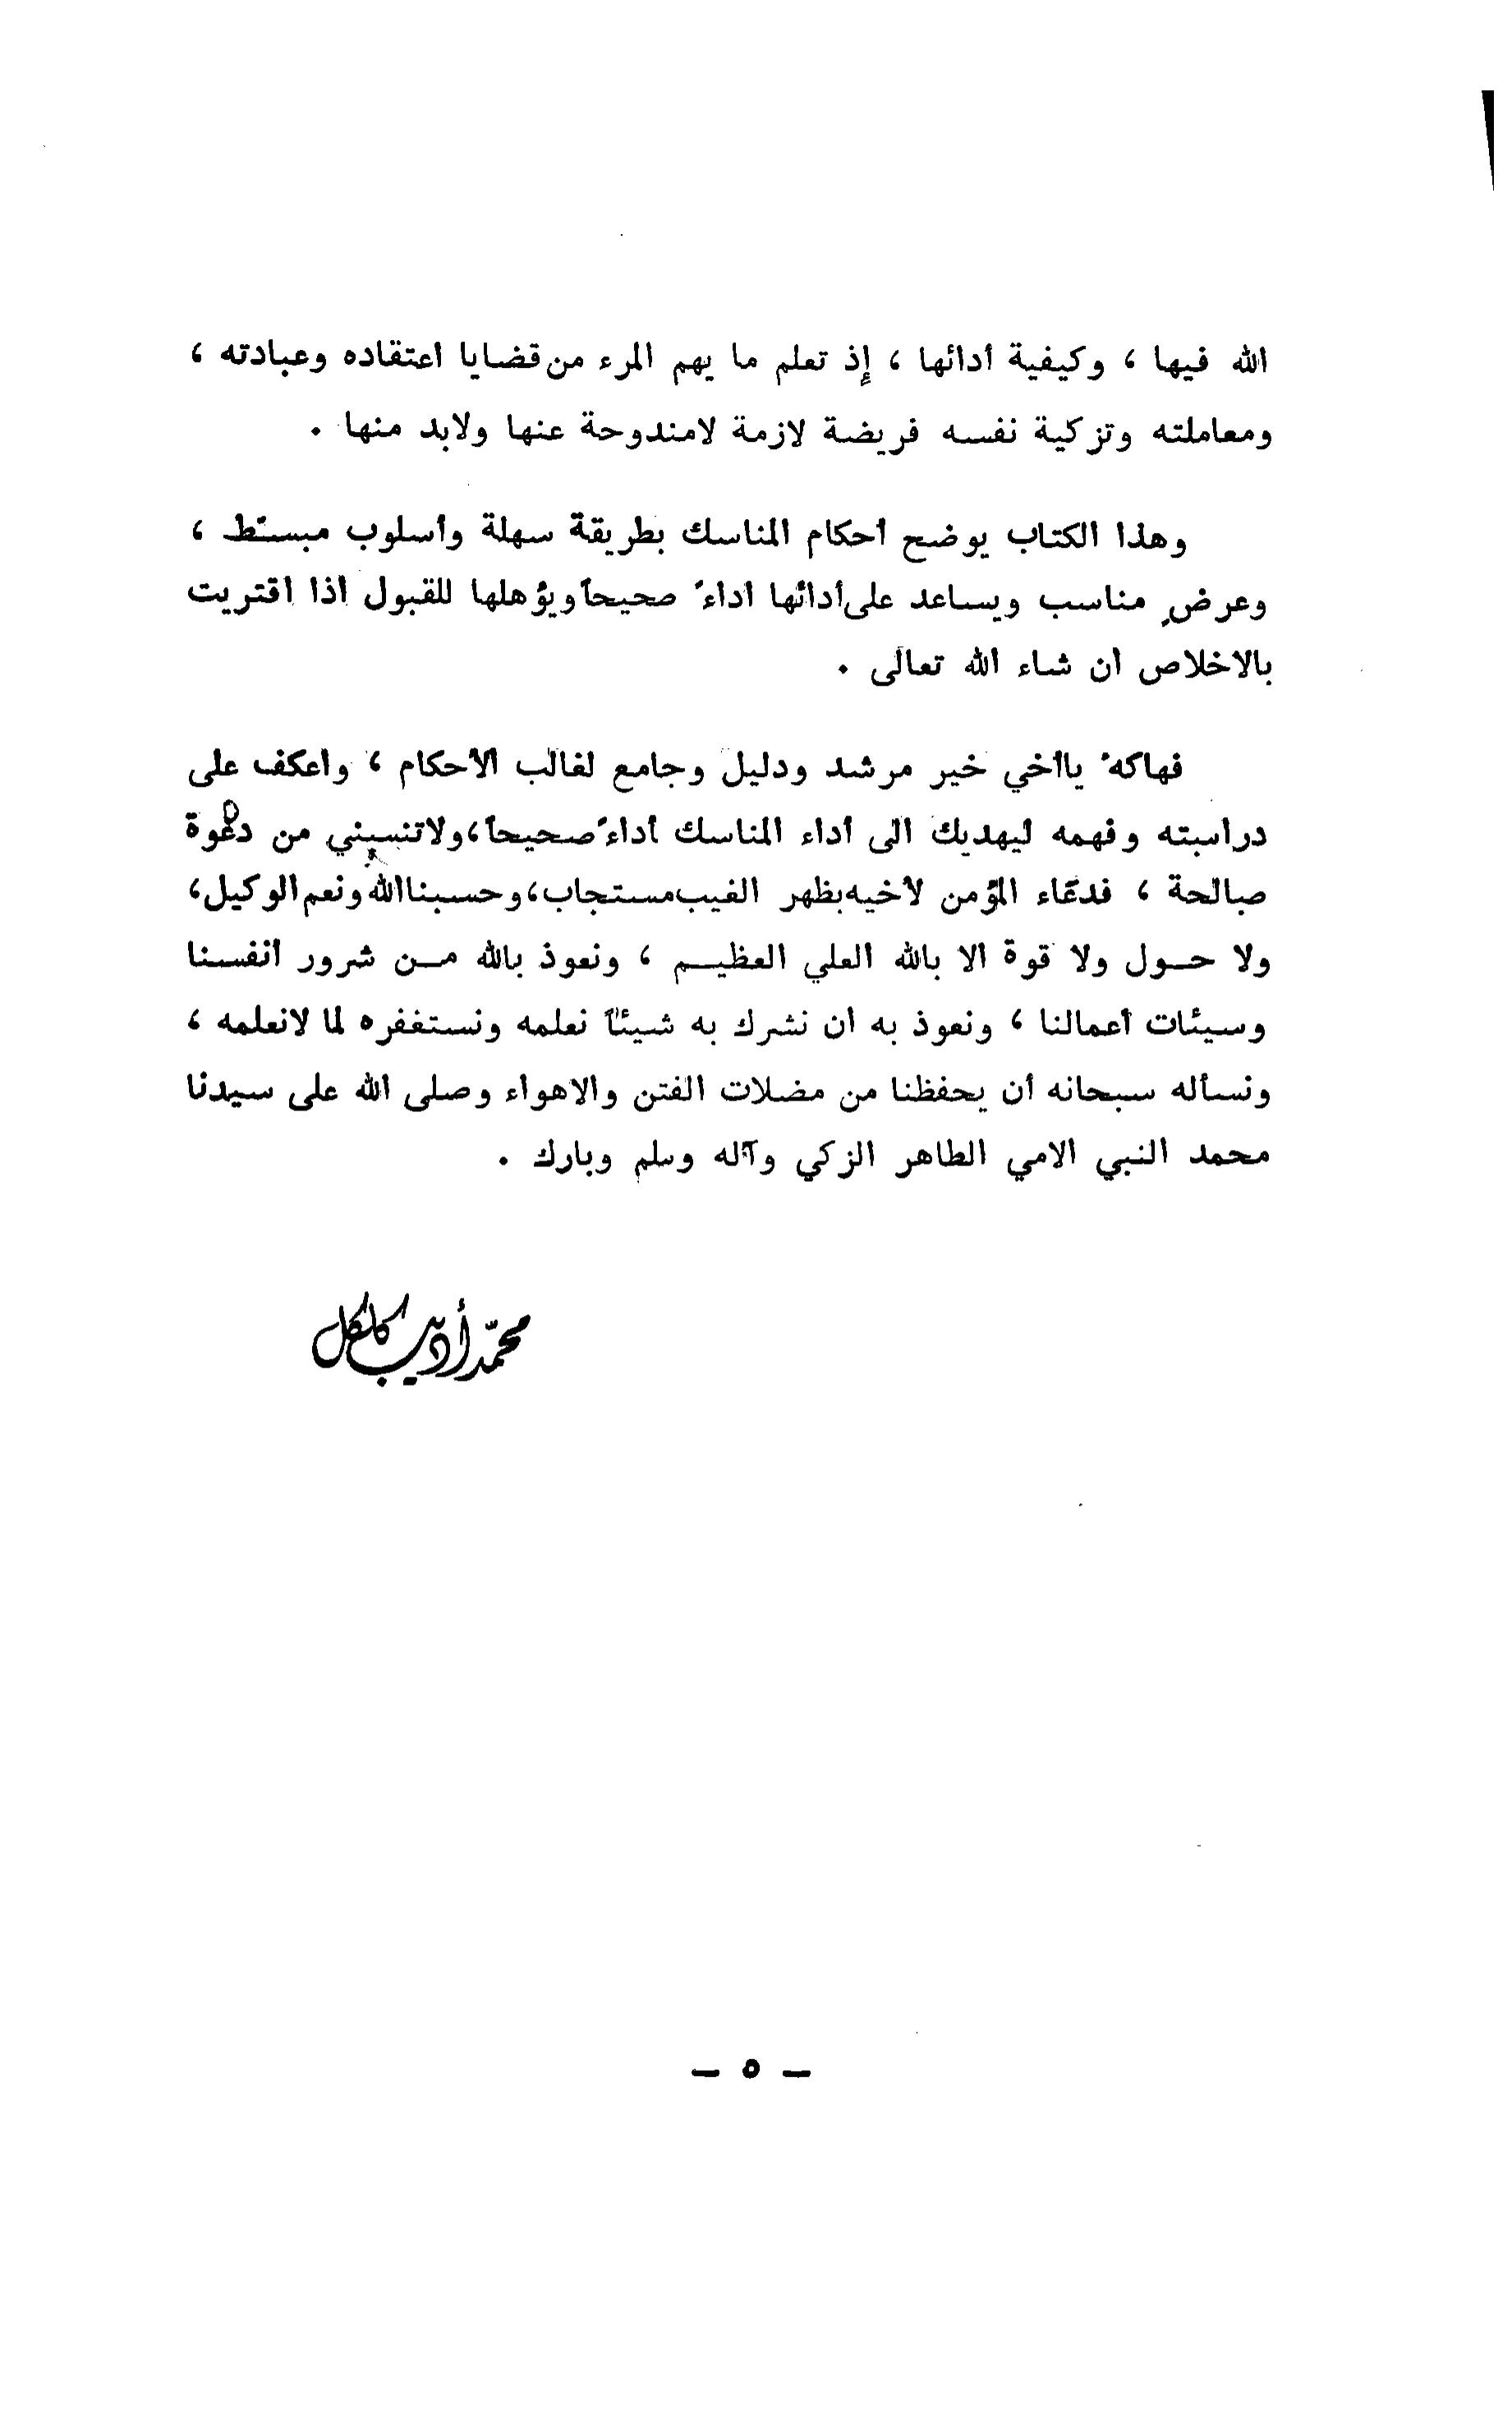 الله فيها ، وكيفية أدائها ، إذ تعلم ما يهم المرء من قضايا اعتقاده وعبادته ،
ومعاملته وتزكية نفسه فريضة لازمة لامندوحة عنها ولابد منها .
وهذا الكتاب يوضح أحكام المناسك بطريقة سهلة وأسلوب مبسّط ،
وعرضٍ مناسب ويساعد على أدائها اداءً صحيحاً ويؤهلها للقبول اذا اقتريت
بالاخلاص ان شاء الله تعالى .
فهاكه ياأخي خير مرشد ودليل وجامع لغالب الأحكام ، واعكف على
دراسته وفهمه ليهديك الى أداء المناسك أداءً صحيحاً ، ولاتنسني من دعوة
صالحة ، فدعاء المؤمن لأخيه بظهر الغيب مستجاب ، وحسبنا الله ونعم الوكيل ،
ولا حول ولا قوة الا بالله العلي العظيم ، ونعوذ بالله من شرور أنفسنا
وسيئات أعمالنا ، ونعوذ به ان نشرك به شيئاً نعلمه ونستغفره لما لانعلمه ،
ونسأله سبحانه أن يحفظنا من مضلات الفتن والاهواء وصلى الله على سيدنا
محمد النبي الامي الطاهر الزكي وآله وسلم وبارك .
محمّد أديب كلكل
— ٥ —